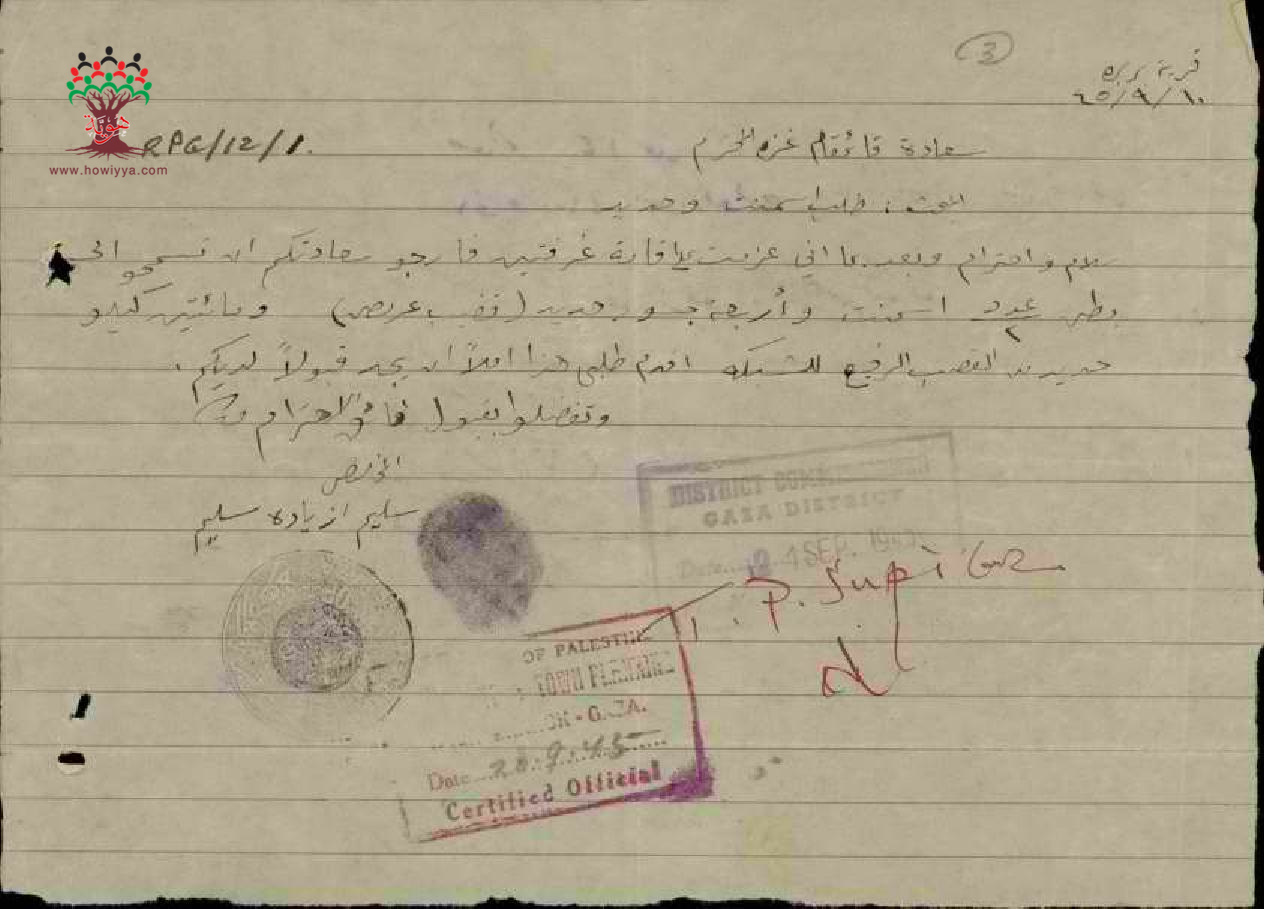 3
قرية بربره
٤٥/٩/١٠
هوية
www.howiyya.com
RPG/12/1.
سعادة قائمقام غزه المحترم
البحث : طلب سمنت وحديد
سلام واحترام وبعد بما اني عزمت على اقامة غرفتين فارجو سعادتكم ان تسمحو الي
بطن عدد ٢ اسمنت وأربعة جسور حديد (قضيب عريض) ومائتين كيلو
حديد من القصب الرفيع للشبكه اقدم طلبي هذا املاً ان يجد قبولاً لديكم .
وتفضلوا بقبول فائق الاحترام
المخلص
سليم ازياده سليم
DISTRICT COMMISSIONER
GAZA DISTRICT
Date 24 SEP. 1945
OF PALESTINE
TOWN PLANNING
ON - GAZA.
Date 20.9.45
Certified Official